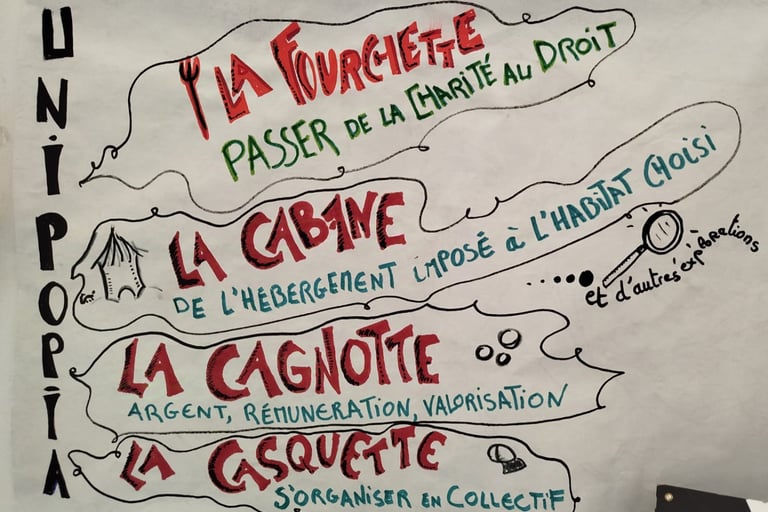 UNIPOPIA
LA FOURCHETTE
PASSER DE LA CHARITÉ AU DROIT
LA CABANE
DE L'HÉBERGEMENT IMPOSÉ à L'HABITAT CHOISI
et d'autres explorations
LA CAGNOTTE
ARGENT, RÉMUNERATION, VALORISATION
LA CASQUETTE
S'ORGANISER EN COLLECTIF